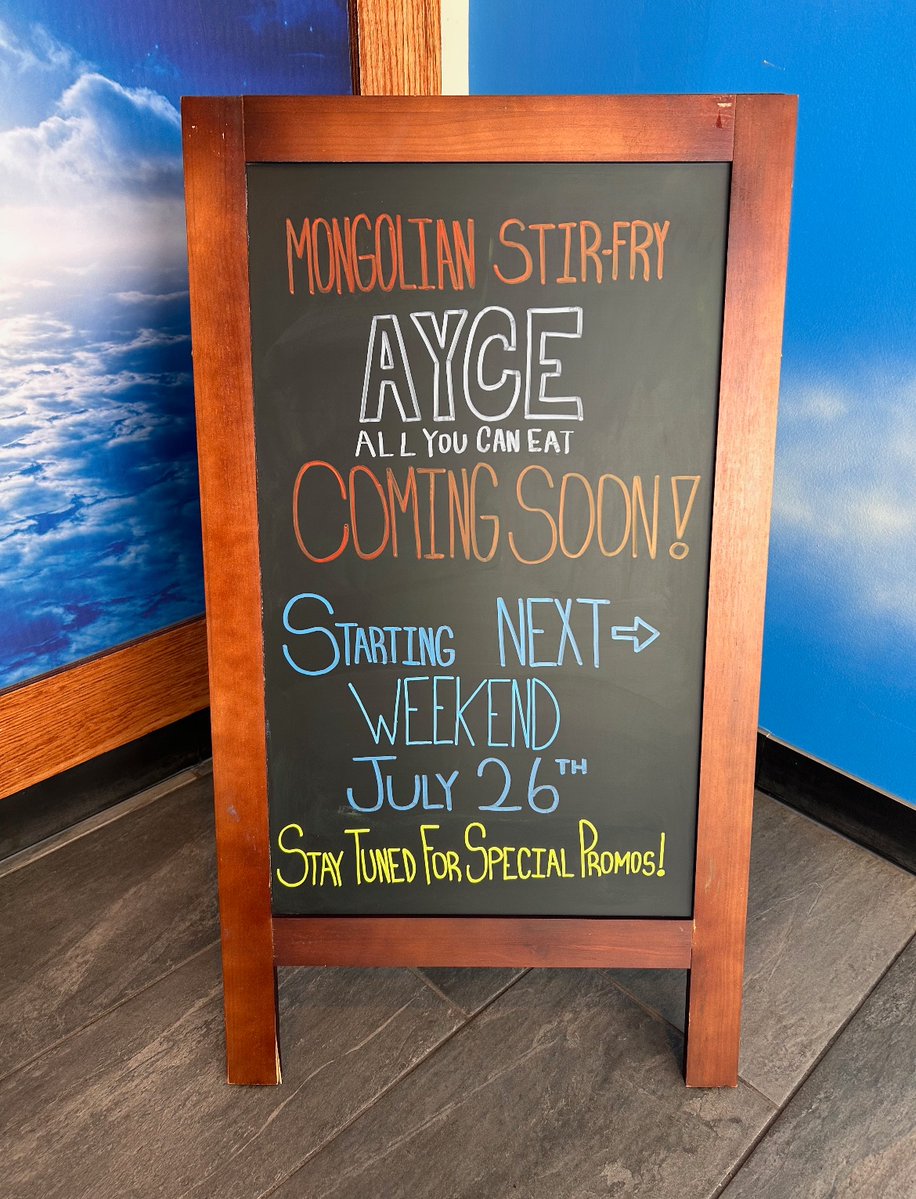 MONGOLIAN STIR-FRY
AYCE
ALL YOU CAN EAT
COMING SOON!
STARTING NEXT →
WEEKEND
JULY 26TH
STAY TUNED FOR SPECIAL PROMOS!